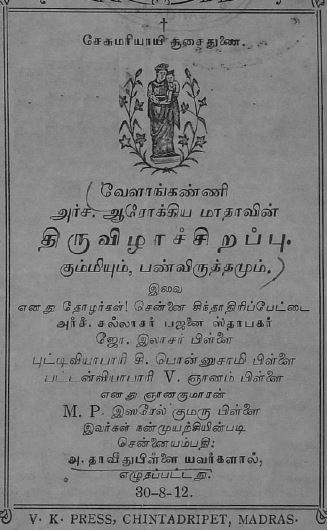 சேசுமரியாயி சூசைதுணை.
(வேளாங்கண்ணி
அர்ச். ஆரோக்கிய மாதாவின்
திருவிழாச்சிறப்பு.
கும்மியும், பண்விருத்தமும்.)
இவை
எனது தோழர்கள்! சென்னை சிந்தாதிரிப்பேட்டை
அர்ச். சல்லாசர் பஜனை ஸ்தாபகர்
ஜோ. இலாசர் பிள்ளை
புட்டிவியாபாரி சி. பொன்னுசாமி பிள்ளை
பட்டன்வியாபாரி V. ஞானம் பிள்ளை
எனது ஞானகுமாரன்
M. P. இஸரேல் குமரு பிள்ளை
இவர்கள் நன்முயற்சியின்படி
சென்னையம்பதி:
அ. தாவீதுபிள்ளை யவர்களால்,
எழுதப்பட்டது.
30-8-12.
V. K. PRESS, CHINTADRIPET, MADRAS.